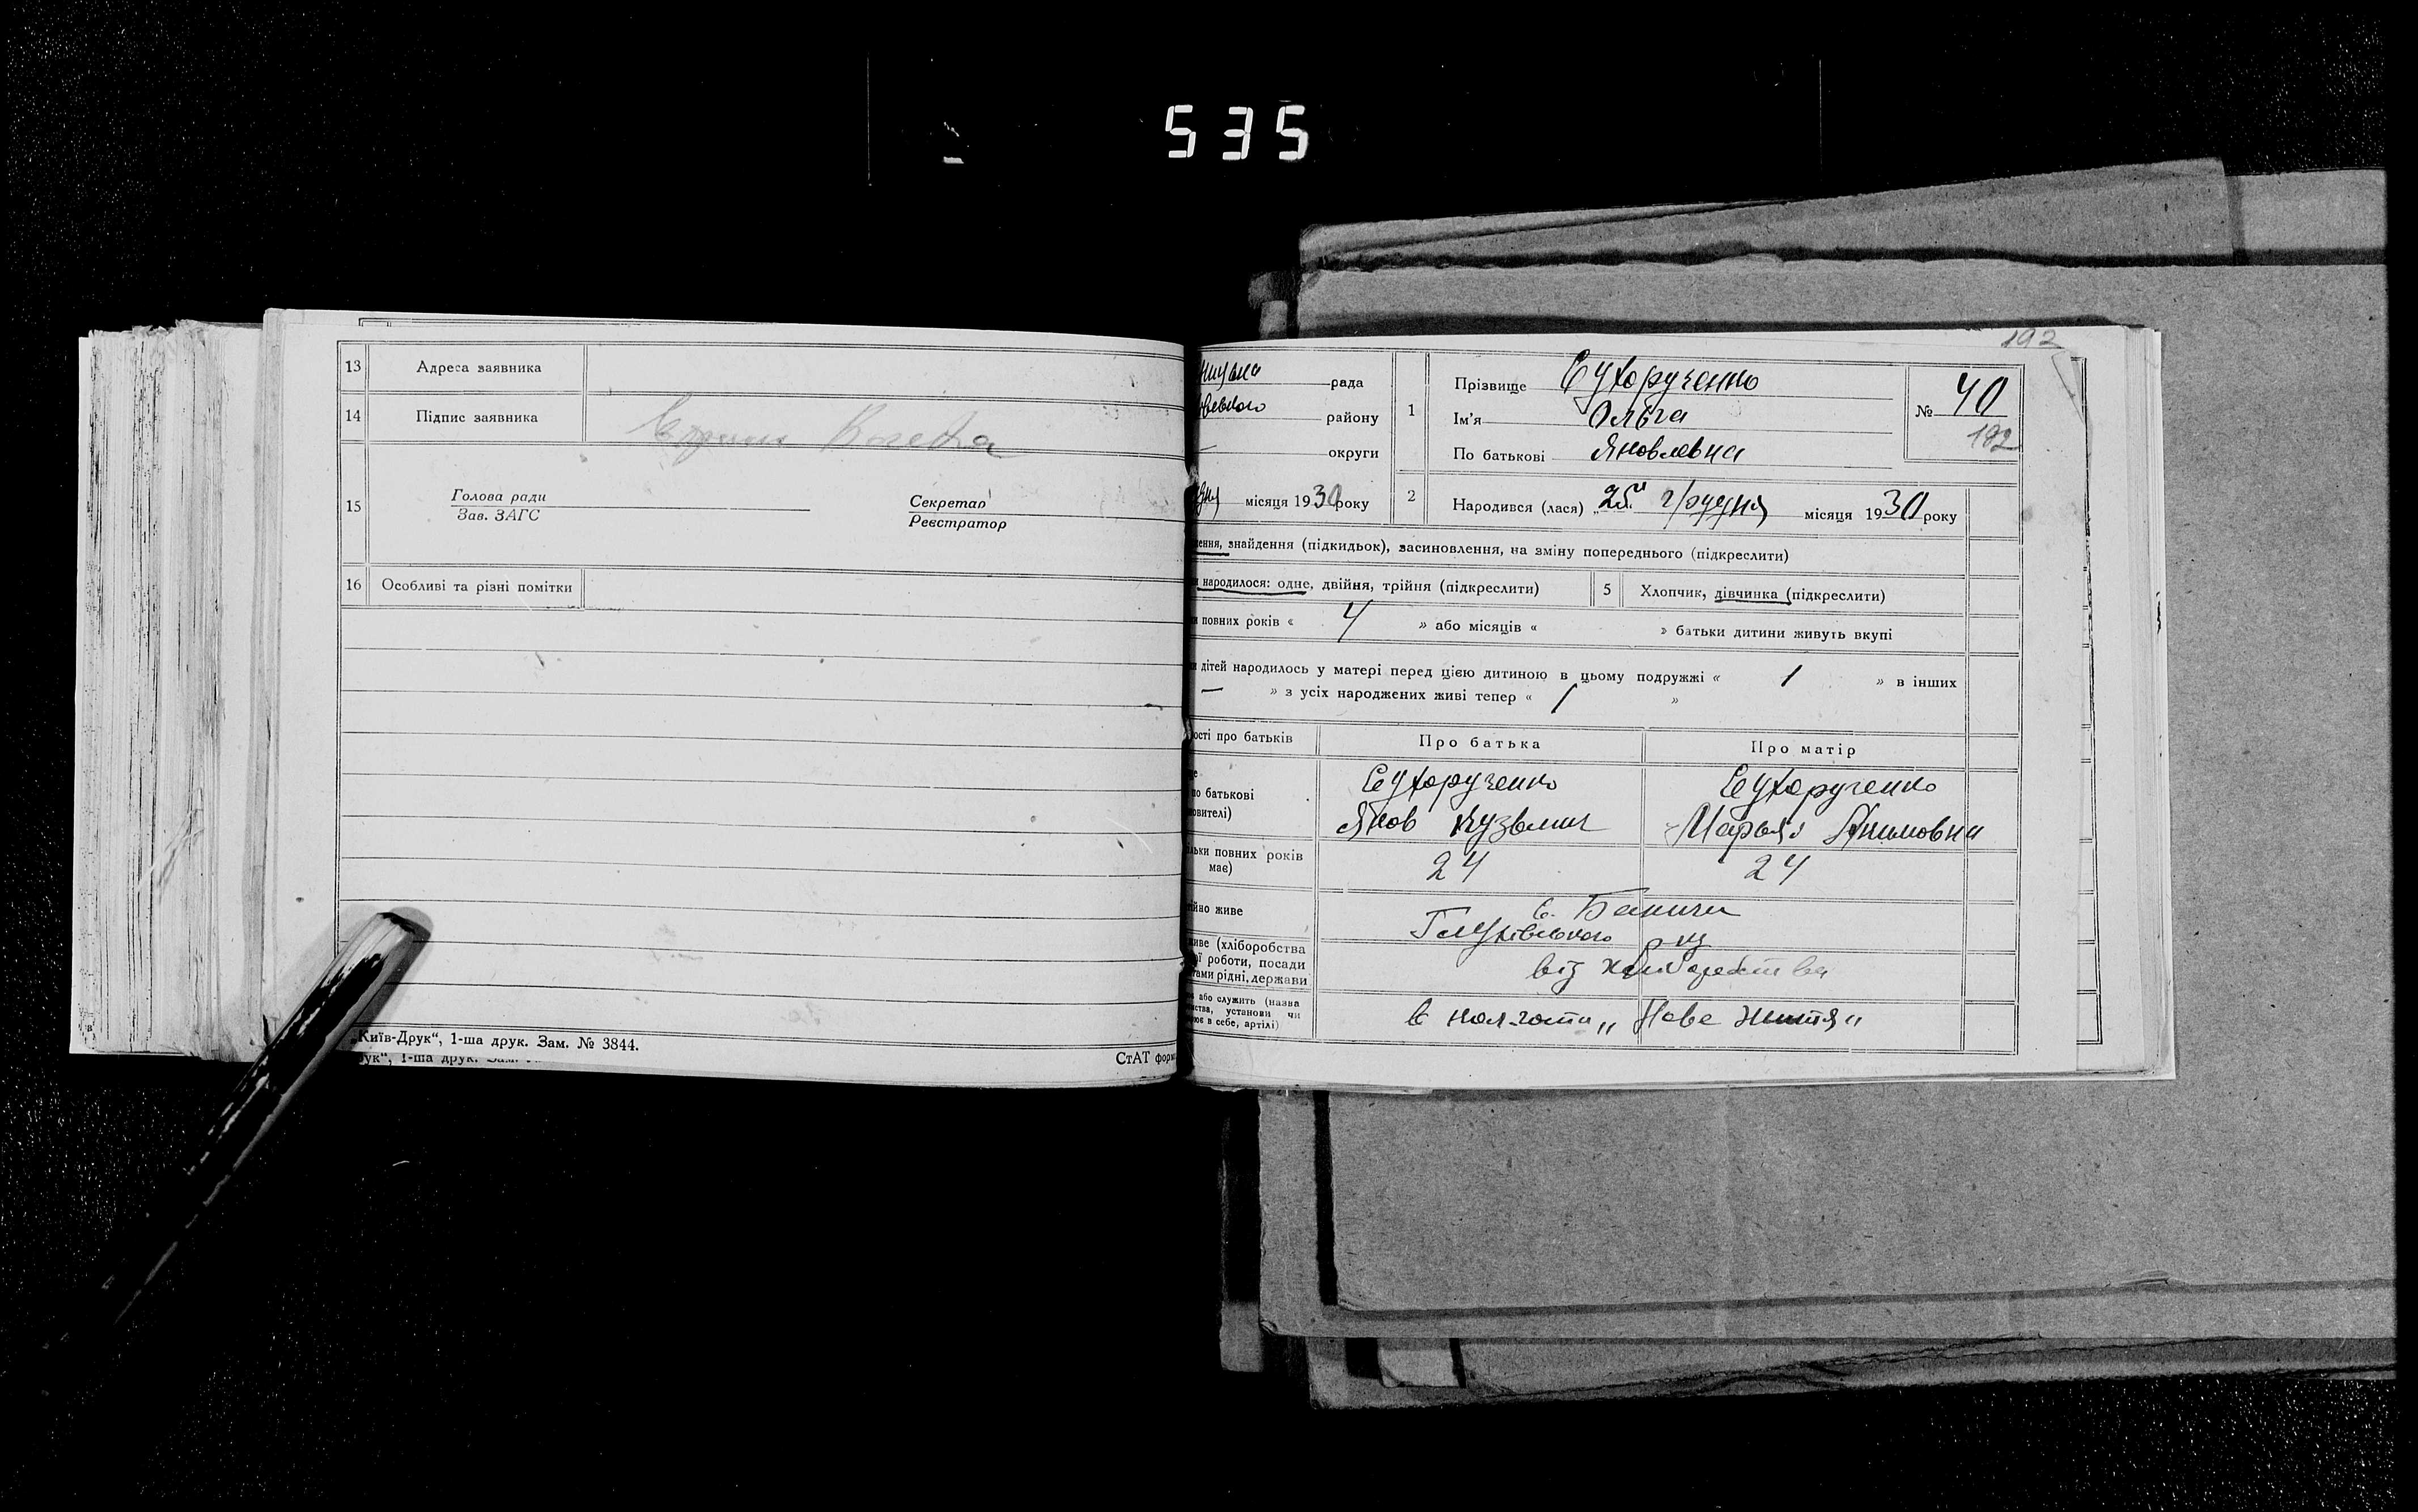 535
13 Адреса заявника
14 Підпис заявника
15 Голова ради Секретар
Зав. ЗАГС Реєстратор
16 Особливі та різні помітки
„Київ-Друк“, 1-ша друк. Зам. № 3844.
СтАТ форм
192
рада
району
округи
місяця 1930 року
1 Прізвище Сухорученко
Ім'я Ольга
По батькові Яковлевна
№ 40
192
2 Народився (лася) „25“ грудня місяця 1930 року
знайдення (підкидьок), засиновлення, на зміну попереднього (підкреслити)
народилося: одне, двійня, трійня (підкреслити)
5 Хлопчик, дівчинка (підкреслити)
повних років « 4 » або місяців « » батьки дитини живуть вкупі
дітей народилось у матері перед цією дитиною в цьому подружжі « 1 » в інших
— » з усіх народжених живі тепер « 1 »
ості про батьків Про батька Про матір
по батькові
Сухорученко Сухорученко
Яков Кузьмич Марья Якимовна
повних років має)
24 24
живе
с. Баничи
Глухівського р-ну
(хліборобства
роботи, посади
рідні, держави
від хліборобства
або служить (назва
установи чи
в себе, артілі)
в кол-госпи „Нове життя“